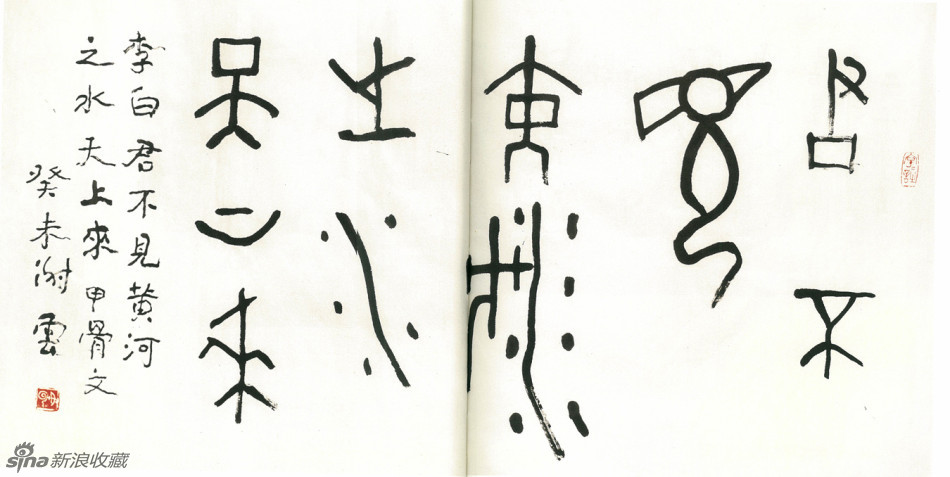 君不
見
黄河
之水
天上来
李白君不見黄河
之水天上來甲骨文
癸未谢雲
sina新浪收藏